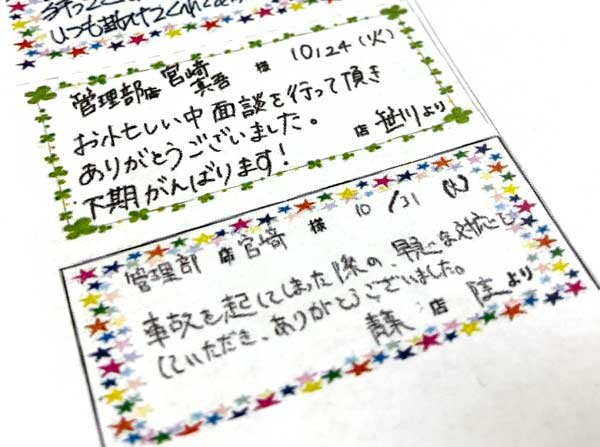 いつも助けてくれて
管理部店 宮崎真吾 様 10/24(火)
お忙しい中面談を行って頂き
ありがとうございました。
下期がんばります!
店 笹川より
管理部 店 宮崎 様 10/31(火)
事故を起してしまった際の 早急な対応を
していただき、ありがとうございました。
店 より